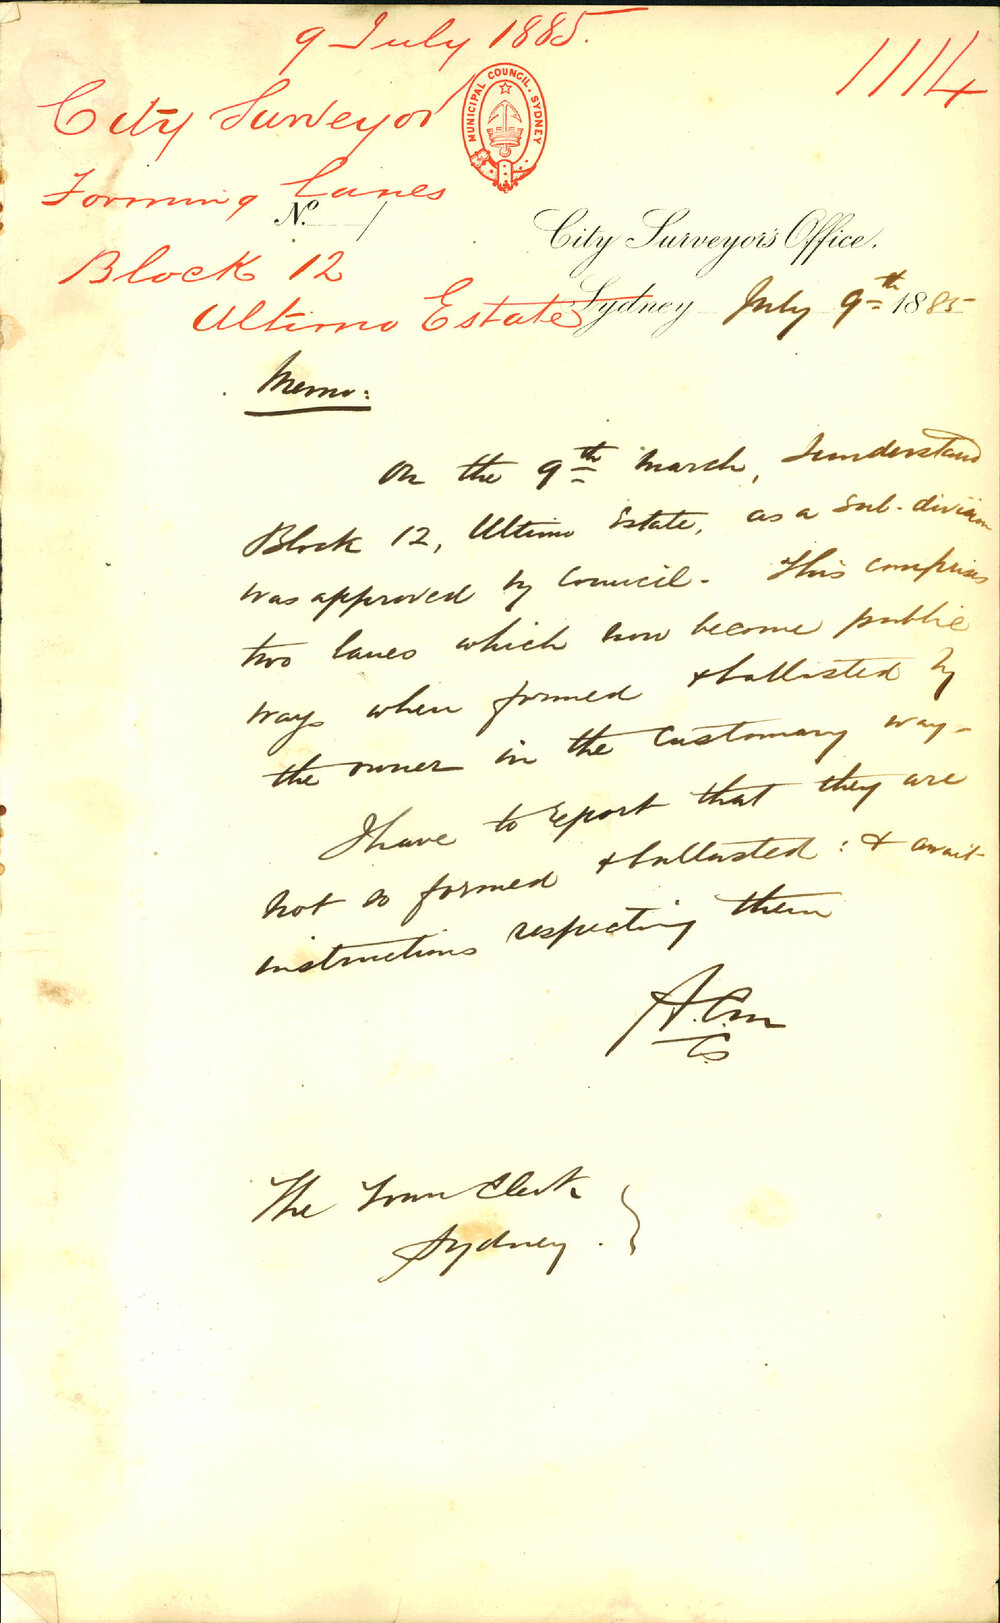 9 July 1885.
1114
City Surveyor
MUNICIPAL COUNCIL. SYDNEY
Forming Lanes
No.
City Surveyor's Office.
Block 12
Ultimo Estate
Sydney July 9th 1885
Memo:
On the 9th March, I understand
Block 12, Ultimo Estate, as a sub-division
was approved by Council. This comprises
two lanes which now become public
ways when formed & ballasted by
the owner in the customary way.
I have to report that they are
not so formed & ballasted: & await
instructions respecting them
A.C.M
C.S.
The Town Clerk
Sydney.